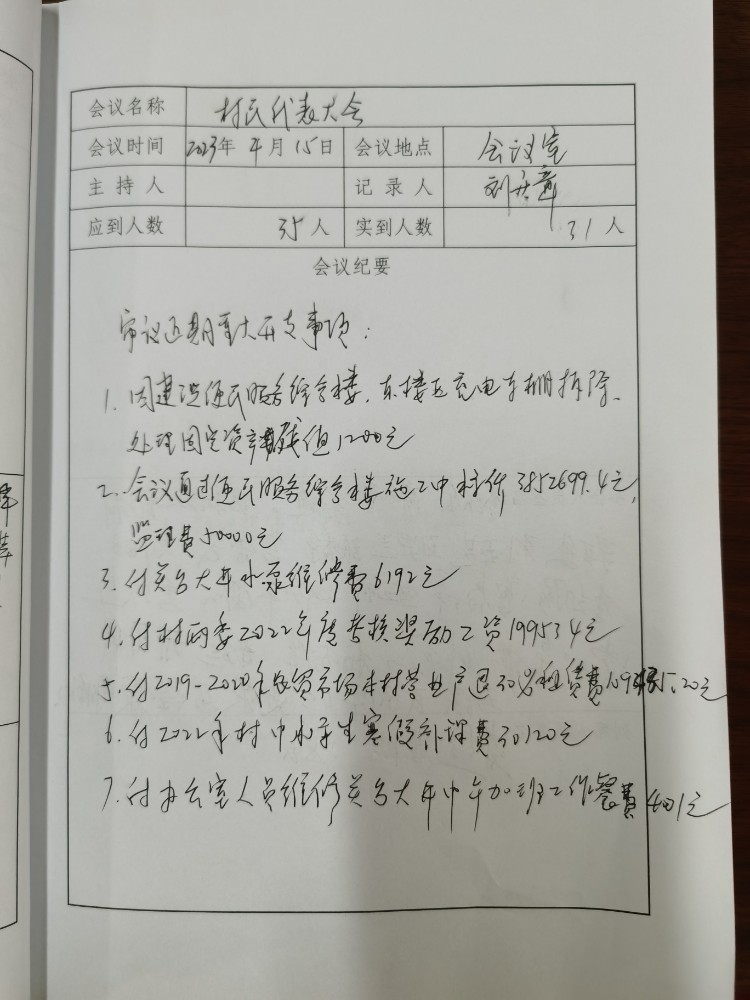 会议名称 村民代表大会
会议时间 2023年 4月 15日 会议地点 会议室
主持人 记录人 刘庆章
应到人数 35人 实到人数 31人
会议纪要
审议近期重大开支事项:
1. 因建设便民服务综合楼,东楼区充电车棚拆除、
处理固定资产残值1200元
2. 会议通过便民服务综合楼施工中标价3852699.4元,
监理费50000元
3. 付 大井水泵维修费6192元
4. 付村两委2022年度考核奖励工资199534元
5. 付2019-2020年农贸市场本村营业户退30%租赁费
6. 付2022年村中小学生寒假补课费30120元
7. 付办公室人员维修 大井中午加班工作餐费401元